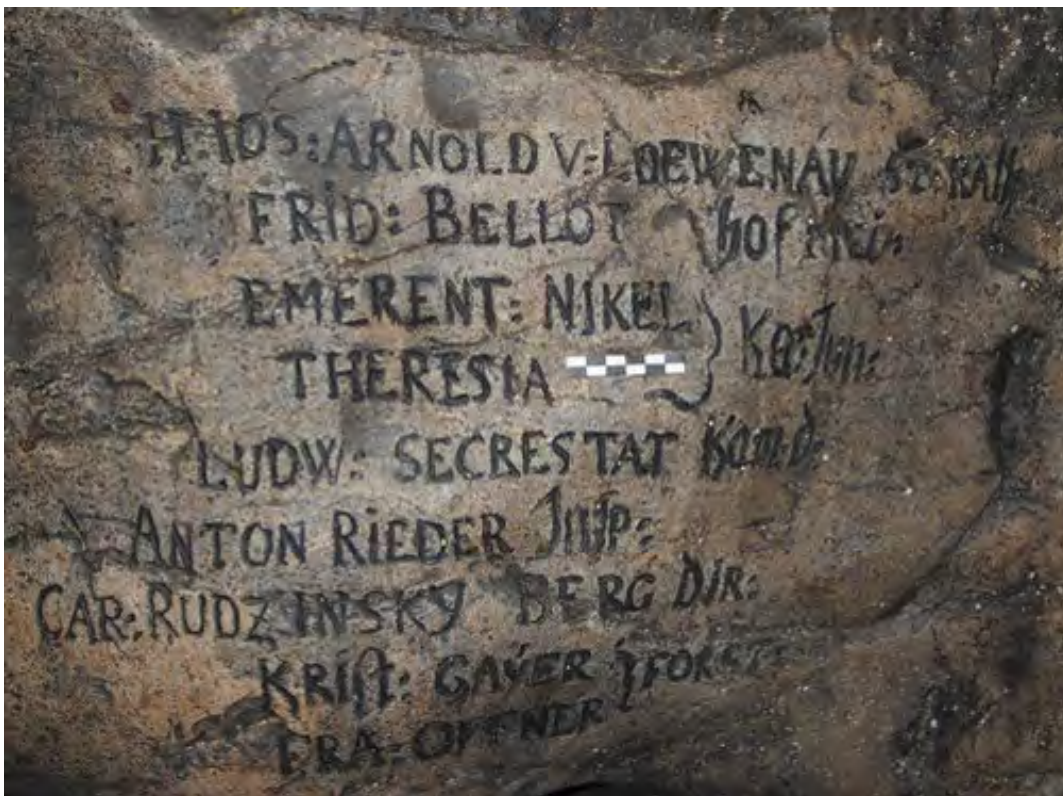 H: IOS: ARNOLD V: LOEWENAU
FRID: BELLOT hofmei:
EMERENT: NIKEL
THERESIA
LUDW: SECRESTAT Kam.d:
ANTON RIEDER Insp:
CAR: RUDZINSKY BERG DIR:
KRIST: GAŸER
FRA OFFNER